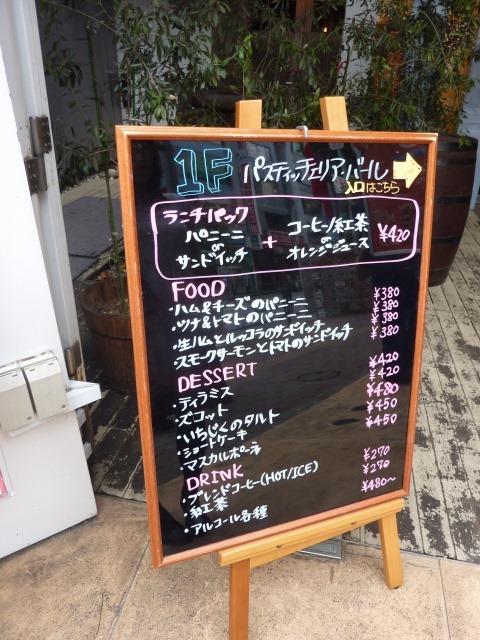 1F パスティッチェリア・バール
入口はこちら
ランチパック
パニーニ
or
サンドイッチ
+
コーヒー/紅茶
or
オレンジジュース
¥420
FOOD
・ハム&チーズのパニーニ ¥380
・ツナ&トマトのパニーニ ¥380
・生ハムとルッコラのサンドイッチ ¥380
・スモークサーモンとトマトのサンドイッチ ¥380
DESSERT
・ティラミス ¥420
・ズコット ¥420
・いちじくのタルト ¥480
・ショートケーキ ¥450
・マスカルポーネ ¥450
DRINK
・ブレンドコーヒー(HOT/ICE) ¥270
・紅茶 ¥270
・アルコール各種 ¥480~